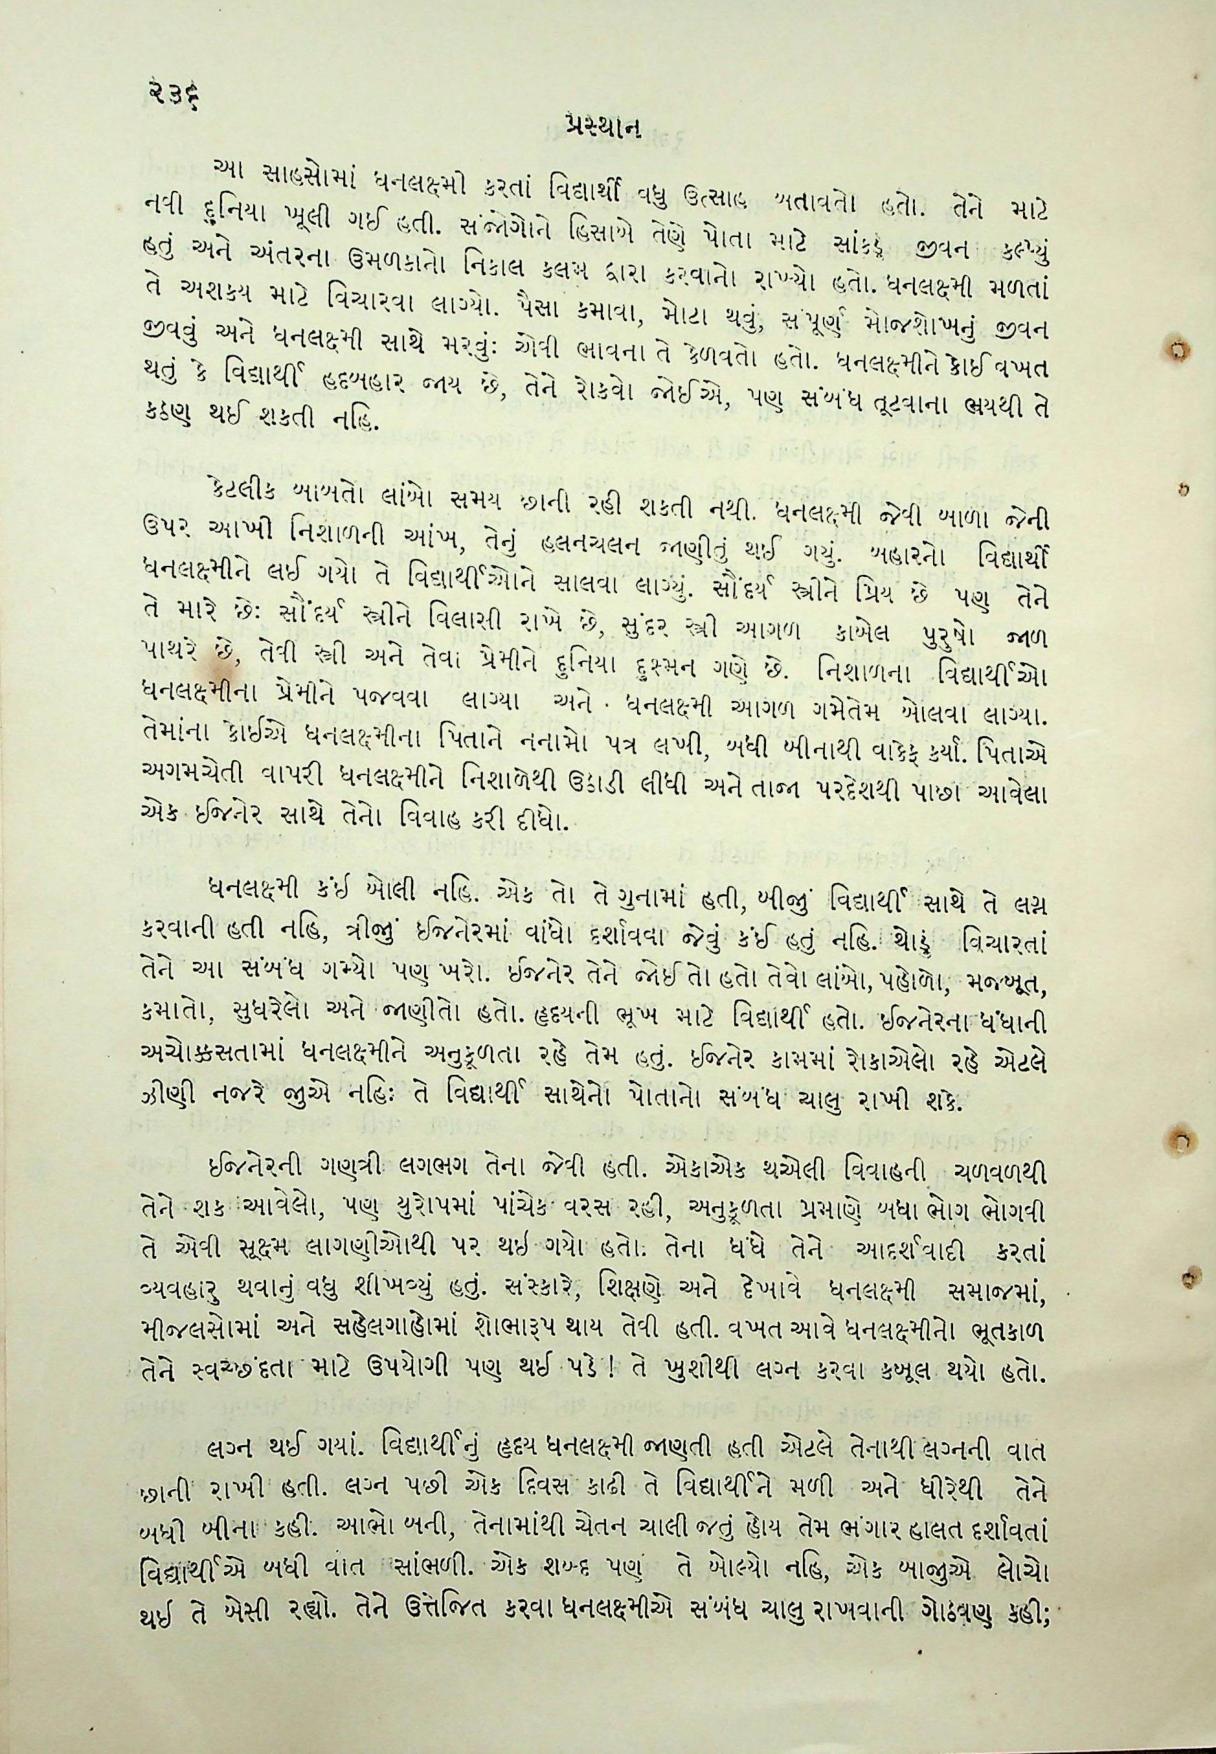 ૨૩૬
પ્રસ્થાન
આ સાહસોમાં ધનલક્ષ્મી કરતાં વિદ્યાર્થી વધુ ઉત્સાહ બતાવતો હતો. તેને માટે
નવી દુનિયા ખૂલી ગઈ હતી. સંજોગોને હિસાબે તેણે પોતા માટે સાંકડું જીવન કલ્પ્યું
હતું અને અંતરના ઉમળકાનો નિકાલ કલમ દ્વારા કરવાનો રાખ્યો હતો. ધનલક્ષ્મી મળતાં
તે અશક્ય માટે વિચારવા લાગ્યો. પૈસા કમાવા, મોટા થવું, સંપૂર્ણ મોજશોખનું જીવન
જીવવું અને ધનલક્ષ્મી સાથે મરવું: એવી ભાવના તે કેળવતો હતો. ધનલક્ષ્મીને કોઈ વખત
થતું કે વિદ્યાર્થી હદબહાર જાય છે, તેને રોકવો જોઈએ, પણ સંબંધ તૂટવાના ભયથી તે
કઠણ થઈ શકતી નહિ.
કેટલીક બાબતો લાંબો સમય છાની રહી શકતી નથી. ધનલક્ષ્મી જેવી બાળા જેની
ઉપર આખી નિશાળની આંખ, તેનું હલનચલન જાણીતું થઈ ગયું. બહારનો વિદ્યાર્થી
ધનલક્ષ્મીને લઈ ગયો તે વિદ્યાર્થીઓને સાલવા લાગ્યું. સૌંદર્ય સ્ત્રીને પ્રિય છે પણ તેને
તે મારે છે: સૌંદર્ય સ્ત્રીને વિલાસી રાખે છે, સુંદર સ્ત્રી આગળ કાબેલ પુરુષો જાળ
પાથરે છે, તેવી સ્ત્રી અને તેવા પ્રેમીને દુનિયા દુશ્મન ગણે છે. નિશાળના વિદ્યાર્થીઓ
ધનલક્ષ્મીના પ્રેમીને પજવવા લાગ્યા અને ધનલક્ષ્મી આગળ ગમેતેમ બોલવા લાગ્યા.
તેમાંના કોઈએ ધનલક્ષ્મીના પિતાને નનામો પત્ર લખી, બધી બીનાથી વાકેફ કર્યા. પિતાએ
અગમચેતી વાપરી ધનલક્ષ્મીને નિશાળેથી ઉઠાડી લીધી અને તાજા પરદેશથી પાછા આવેલા
એક ઈજનેર સાથે તેનો વિવાહ કરી દીધો.
ધનલક્ષ્મી કંઈ બોલી નહિ. એક તો તે ગુનામાં હતી, બીજું વિદ્યાર્થી સાથે તે લગ્ન
કરવાની હતી નહિ, ત્રીજું ઈજનેરમાં વાંધો દર્શાવવા જેવું કંઈ હતું નહિ. થોડું વિચારતાં
તેને આ સંબંધ ગમ્યો પણ ખરો. ઈજનેર તેને જોઈતો હતો તેવો લાંબો, પહોળો, મજબૂત,
કમાતો, સુધરેલો અને જાણીતો હતો. હૃદયની ભૂખ માટે વિદ્યાર્થી હતો. ઈજનેરના ધંધાની
અચોક્કસતામાં ધનલક્ષ્મીને અનુકૂળતા રહે તેમ હતું. ઈજનેર કામમાં રોકાએલો રહે એટલે
ઝીણી નજરે જુએ નહિ: તે વિદ્યાર્થી સાથેનો પોતાનો સંબંધ ચાલુ રાખી શકે.
ઈજનેરની ગણત્રી લગભગ તેના જેવી હતી. એકાએક થએલી વિવાહની ચળવળથી
તેને શક આવેલો, પણ યુરોપમાં પાંચેક વરસ રહી, અનુકૂળતા પ્રમાણે બધા ભોગ ભોગવી
તે એવી સૂક્ષ્મ લાગણીઓથી પર થઈ ગયો હતો. તેના ધંધે તેને આદર્શવાદી કરતાં
વ્યવહારુ થવાનું વધુ શીખવ્યું હતું. સંસ્કારે, શિક્ષણે અને દેખાવે ધનલક્ષ્મી સમાજમાં,
મીજલસોમાં અને સહેલગાહોમાં શોભારૂપ થાય તેવી હતી. વખત આવે ધનલક્ષ્મીનો ભૂતકાળ
તેને સ્વચ્છંદતા માટે ઉપયોગી પણ થઈ પડે! તે ખુશીથી લગ્ન કરવા કબૂલ થયો હતો.
લગ્ન થઈ ગયાં. વિદ્યાર્થીનું હૃદય ધનલક્ષ્મી જાણતી હતી એટલે તેનાથી લગ્નની વાત
છાની રાખી હતી. લગ્ન પછી એક દિવસ કાઢી તે વિદ્યાર્થીને મળી અને ધીરેથી તેને
બધી બીના કહી. આભો બની, તેનામાંથી ચેતન ચાલી જતું હોય તેમ ભંગાર હાલત દર્શાવતાં
વિદ્યાર્થીએ બધી વાત સાંભળી. એક શબ્દ પણ તે બોલ્યો નહિ, એક બાજુએ લોચો
થઈ તે બેસી રહ્યો. તેને ઉત્તેજિત કરવા ધનલક્ષ્મીએ સંબંધ ચાલુ રાખવાની ગોઠવણ કહી;